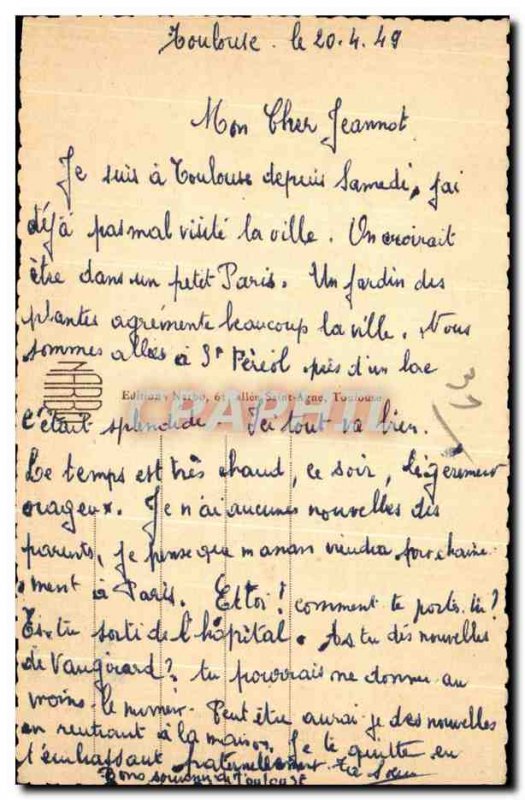 Toulouse. le 20.4.49
Mon Cher Jeannot.
Je suis à Toulouse depuis Samedi, j'ai
déjà pas mal visité la ville. On croirait
être dans un petit Paris. Un jardin des
plantes agrémente beaucoup la ville. Nous
sommes allées à St Féréol près d'un lac
Editions Narbo, 61 Allée Saint-Agne, Toulouse
NARBO
CPAPHIL
31
c'était splendide - Ici tout va bien.
Le temps est très chaud, ce soir, légèrement
orageux. Je n'ai aucunes nouvelles des
parents, je pense que maman viendra prochaine
-ment à Paris. Et toi! comment te portes-tu?
Es-tu sorti de l'hôpital. As tu des nouvelles
de Vaugirard? tu pourrais me donner au
moins le numéro. Peut être aurai-je des nouvelles
en rentrant à la maison. Je te quitte en
t'embrassant fraternellement ta Soeur
Bons souvenirs de Toulouse